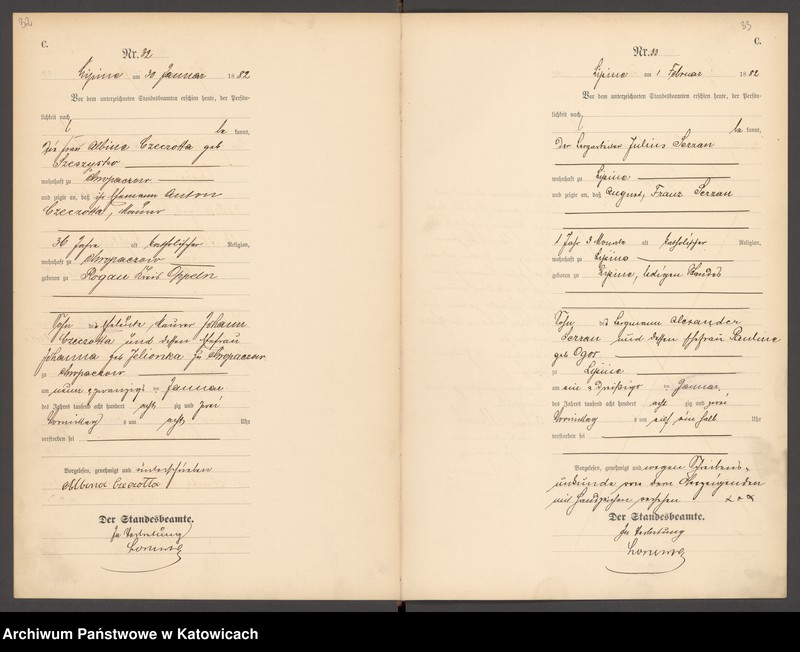 32
C.
Nr. 32
Lipine am 30 Januar 1882
Vor dem unterzeichneten Standesbeamten erschien heute, der Persön-
lichkeit nach
be kannt,
Die Frau Albine Czeczotta geb
wohnhaft zu Chropaczow
und zeigte an, daß ihr Ehemann Anton
Czeczotta, Maurer
36 Jahre alt katholischer Religion,
wohnhaft zu Chropaczow
geboren zu Rogau Kreis Oppeln
Sohn der Eheleute Maurer Johann
Czeczotta und dessen Ehefrau
Johanna geb Jelionka zu Chropaczow
zu Chropaczow
am neun u zwanzigs ten Januar
des Jahres tausend acht hundert acht zig und zwei
Vormittag s um acht Uhr
verstorben sei
Vorgelesen, genehmigt und unterschrieben
Albina Czeczotta
Der Standesbeamte.
In Vertretung
33
C.
Nr. 33
Lipine am 1 Februar 1882
Vor dem unterzeichneten Standesbeamten erschien heute, der Persön-
lichkeit nach
be kannt,
Der Bergarbeiter Julius Serzan
wohnhaft zu Lipine
und zeigte an, daß August, Franz Serzan
1 Jahr 3 Monate alt katholischer Religion,
wohnhaft zu Lipine
geboren zu Lipine, ledigen Standes
Sohn des Bergmann Alexander
Serzan und dessen Ehefrau Pauline
geb. Ogor
zu Lipine
am ein u dreißigs ten Januar
des Jahres tausend acht hundert acht zig und zwei
Vormittag s um elf ein halb Uhr
verstorben sei
Vorgelesen, genehmigt und wegen Schreibens-
unkunde von dem Anzeigenden
mit Handzeichen versehen x x x
Der Standesbeamte.
In Vertretung
Archiwum Państwowe w Katowicach